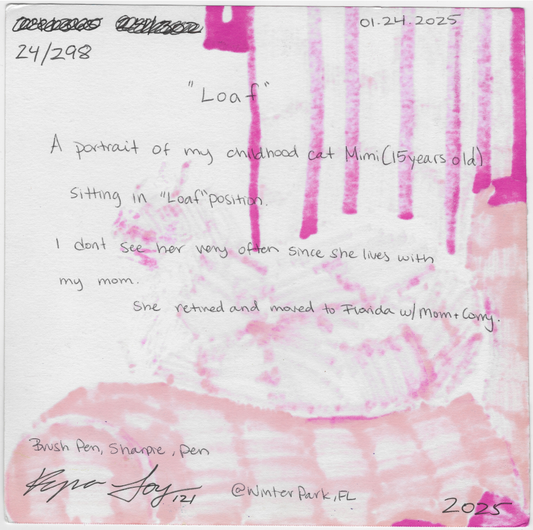 01.24.2025
24/298
"Loaf"
A portrait of my childhood cat Mimi (15 years old)
sitting in "Loaf" position.
I dont see her very often since she lives with
my mom.
She retired and moved to Florida w/ Mom + Corry.
Brush Pen, Sharpie, pen
121
@WinterPark, FL
2025